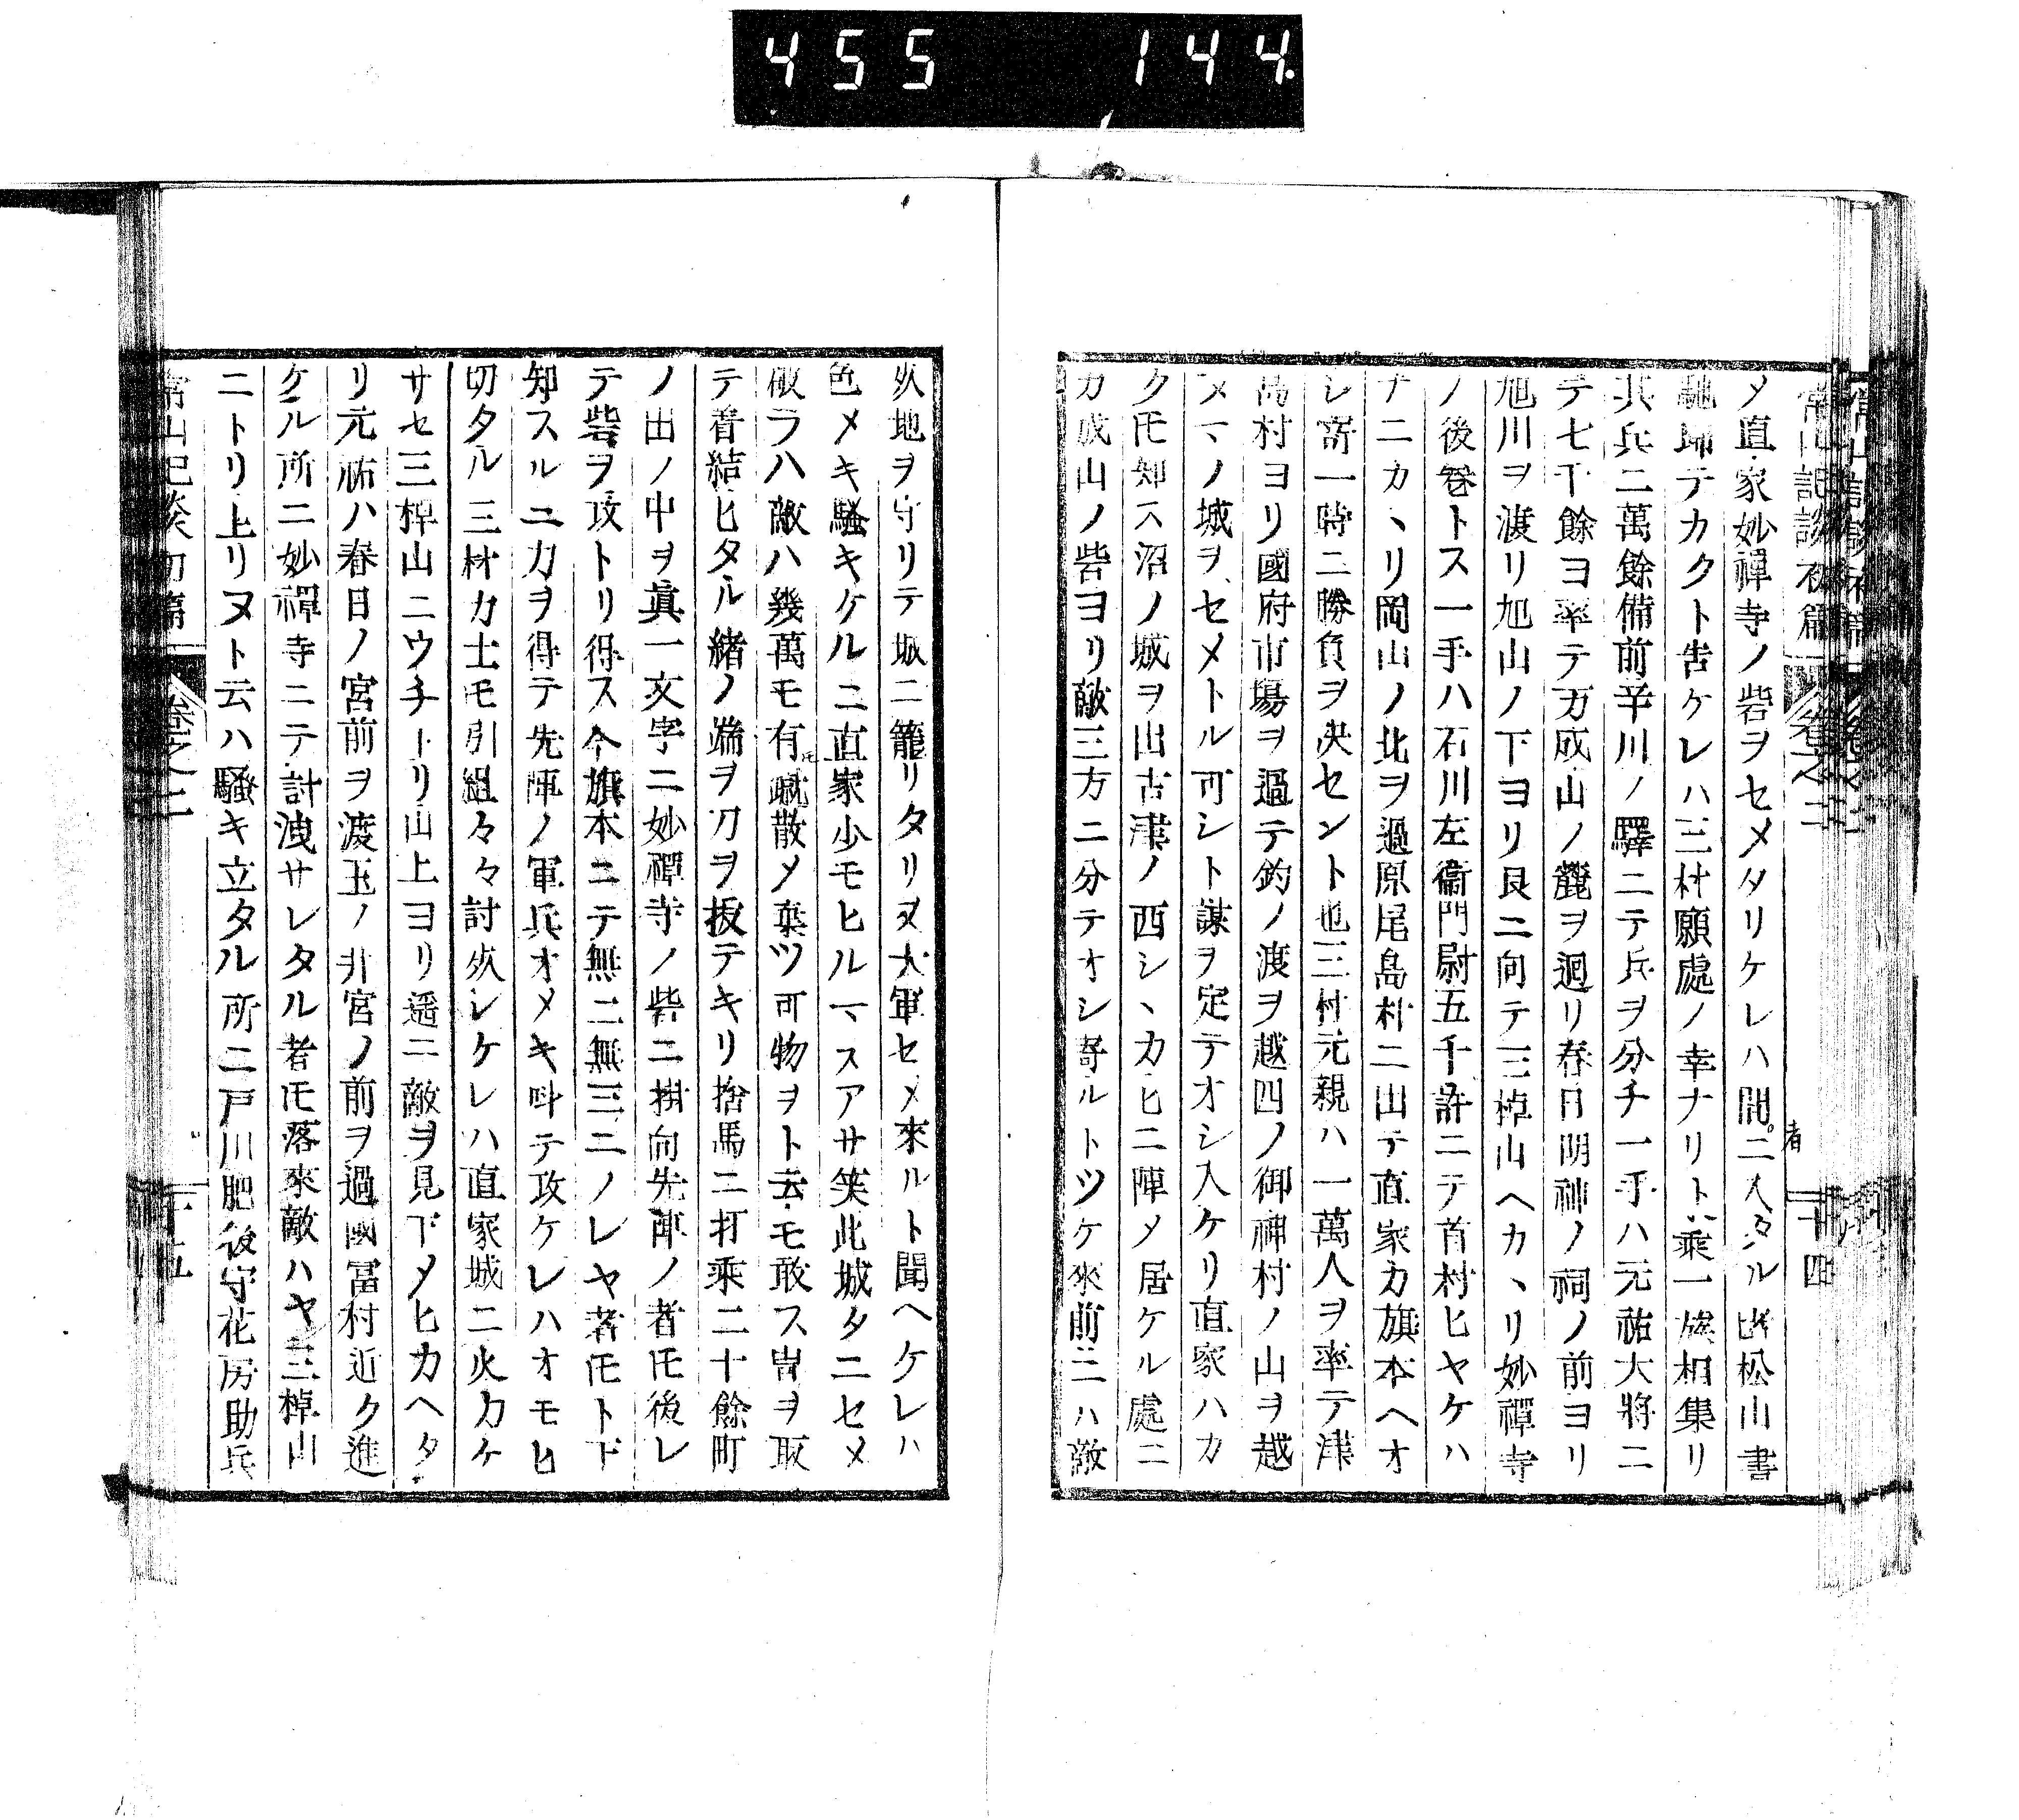 455 144
常山記談初篇 卷之二 二十四
メ直家妙禪寺ノ砦ヲセメタリケレハ間者ニ入タル 松山書
馳歸テカクト告ケレハ三村願處ノ幸ナリト乘一族相集リ
其兵二萬餘備前辛川ノ驛ニテ兵ヲ分チ一手ハ元祐大將ニ
テ七千餘ヨ率テ万成山ノ麓ヲ廻リ春日明神ノ祠ノ前ヨリ
旭川ヲ渡リ旭山ノ下ヨリ艮ニ向テ三棹山ヘカヽリ妙禪寺
ノ後巻トス一手ハ石川左衞門尉五千許ニテ首村ヒヤケハ
ナニカヽリ岡山ノ北ヲ過原尾島村ニ出テ直家カ旗本ヘオ
シ寄一時ニ勝負ヲ决セント也三村元親ハ一萬人ヲ率テ津
島村ヨリ國府市場ヲ過テ釣ノ渡ヲ越四ノ御神村ノ山ヲ越
ヌマノ城ヲセメトル可シト謀ヲ定テオシ入ケリ直家ハカ
ク𪜈知ス沼ノ城ヲ出古津ノ西シヽカヒニ陣メ居ケル處ニ
カ成山ノ砦ヨリ敵三方ニ分テオシ寄ルトツケ來前ニハ敵
必地ヲ守リテ城ニ籠リタリヌ大軍セメ來ルト聞ヘケレハ
色メキ騷キケルニ直家少モヒルマスアサ笑此城タニセメ
破ラハ敵ハ幾萬モ有𪜈蹴散メ棄ツ可物ヲト云モ敢ス冑ヲ取
テ着結ヒタル緒ノ端ヲ刀ヲ抜テキリ捨馬ニ打乘二十餘町
ノ出ノ中ヲ眞一文字ニ妙禪寺ノ砦ニ掛向先陣ノ者𪜈後レ
テ砦ヲ攻トリ得ス今旗本ニテ無二無三ニノレヤ者𪜈ト下
知スルニ力ヲ得テ先陣ノ軍兵オメキ呌テ攻ケレハオモヒ
切タル三村カ士モ引組々々討死レケレハ直家城ニ火カケ
サセ三棹山ニウチトリ山上ヨリ遥ニ敵ヲ見下メヒカヘタ
リ元祐ハ春日ノ宮前ヲ渡玉ノ井宮ノ前ヲ過國冨村近ク進
ケル所ニ妙禪寺ニテ計洩サレタル者𪜈落來敵ハヤ三棹山
ニトリ上リヌト云ハ騷キ立タル所ニ戸川肥後守花房助兵
常山記談初篇 卷之二 二十五